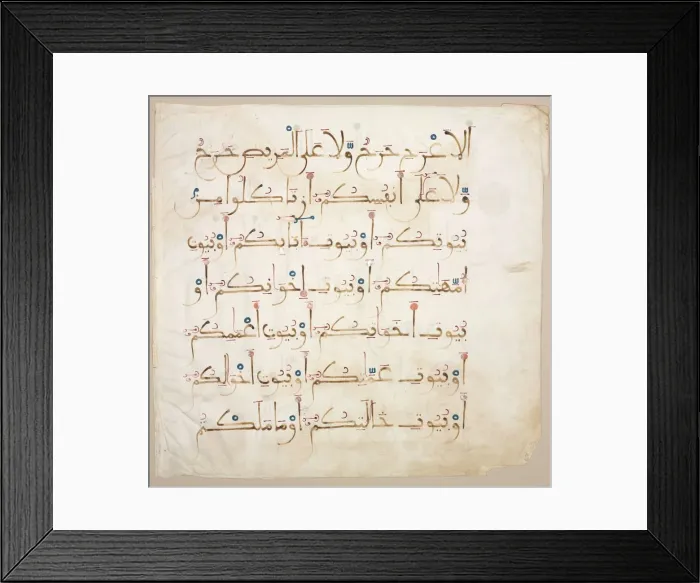 اَلَاعْرَجِ حَرَجٌ وَّلَا عَلَى اَلْمَرِيضِ حَرَجٌ
وَّلَا عَلَىٰ أَنفُسِكُمُۥ أَن تَاكُلُوا مِنۢ
بُيُوتِكُمُۥ أَوْ بُيُوتِ ءَابَآئِكُمُۥ أَوْ بُيُوتِ
أُمَّهَٰتِكُمُۥ أَوْ بُيُوتِ إِخْوَٰنِكُمُۥ أَوْ
بُيُوتِ أَخَوَٰتِكُمُۥ أَوْ بُيُوتِ أَعْمَٰمِكُمُۥ
أَوْ بُيُوتِ عَمَّٰتِكُمُۥ أَوْ بُيُوتِ أَخْوَٰلِكُمُۥ
أَوْ بُيُوتِ خَٰلَٰتِكُمُۥ أَوْ مَا مَلَكْتُم